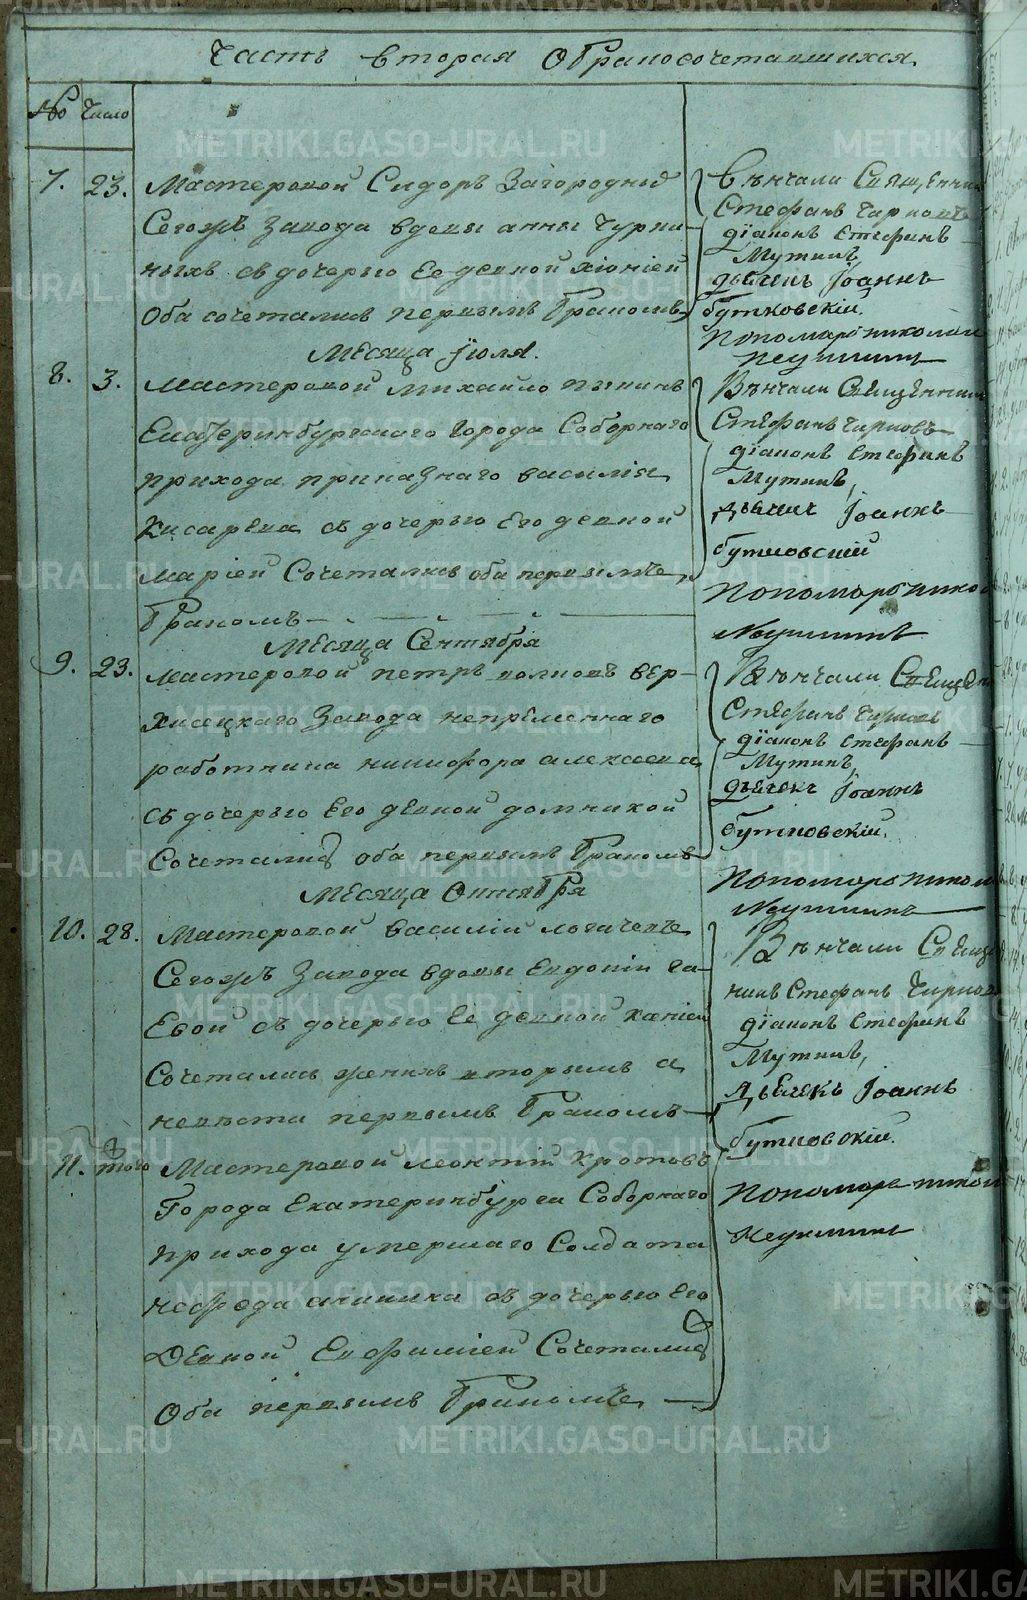 Часть вторая О бракосочетавшихся
No Число
7. 23. Мастеровой Сидоръ Загородный
Сегожъ Завода вдовы анны Чурки-
ныхъ съ дочерью Ее девкой хіоніей
Оба сочетались первымъ бракомъ
Венчали Священник
Стефанъ Чирковъ
діаконъ Стефанъ
Мутинъ,
дьячекъ Іоаннъ
бутковскій.
Пономарь николай
Неуиминъ
Месяца Іюля.
8. 3. Мастеровой михайло пынинъ
Екатеринбургскаго города Соборнаго
прихода приказнаго василія
Кисарева съ дочерью Его девкой
маріей Сочетались оба первымъ
бракомъ
Венчали Священник
Стефанъ Чирковъ
діаконъ Стефанъ
Мутинъ,
дьячик Іоаннъ
бутковскій
Пономарь никол
Неуиминъ
Месяца Сентября
9. 23. мастеровой петръ волковъ вер-
хисецкаго Завода непременнаго
работника никифора алексеева
съ дочерью Его девкой домникой
Сочетались оба первымъ бракомъ
Венчали Священ
Стефанъ Чирков
діаконъ Стефанъ
Мутинъ,
дьячекъ Іоаннъ
бутковскій.
Пономарь никол
Неуиминъ
Месяца Октября
10. 28. Мастеровой василій логачевъ
Сегожъ Завода вдовы Евдокіи га-
Евой съ дочерью Её девкой хеніей
Сочетались женихъ вторымъ а
невеста первымъ бракомъ
Венчали Священ
никъ Стефанъ Чирков
діаконъ Стефанъ
Мутинъ,
Дьячекъ Іоаннъ
бутковскій.
Пономарь николай
Неуиминъ
11. того Мастеровой леонтій кротовъ
Города Екатеринбурга Соборнаго
прихода умершаго Солдата
нефеда съ дочерью Его
Девкой Евфиміей Сочетались
Оба первымъ бракомъ
METRIKI.GASO-URAL.RU